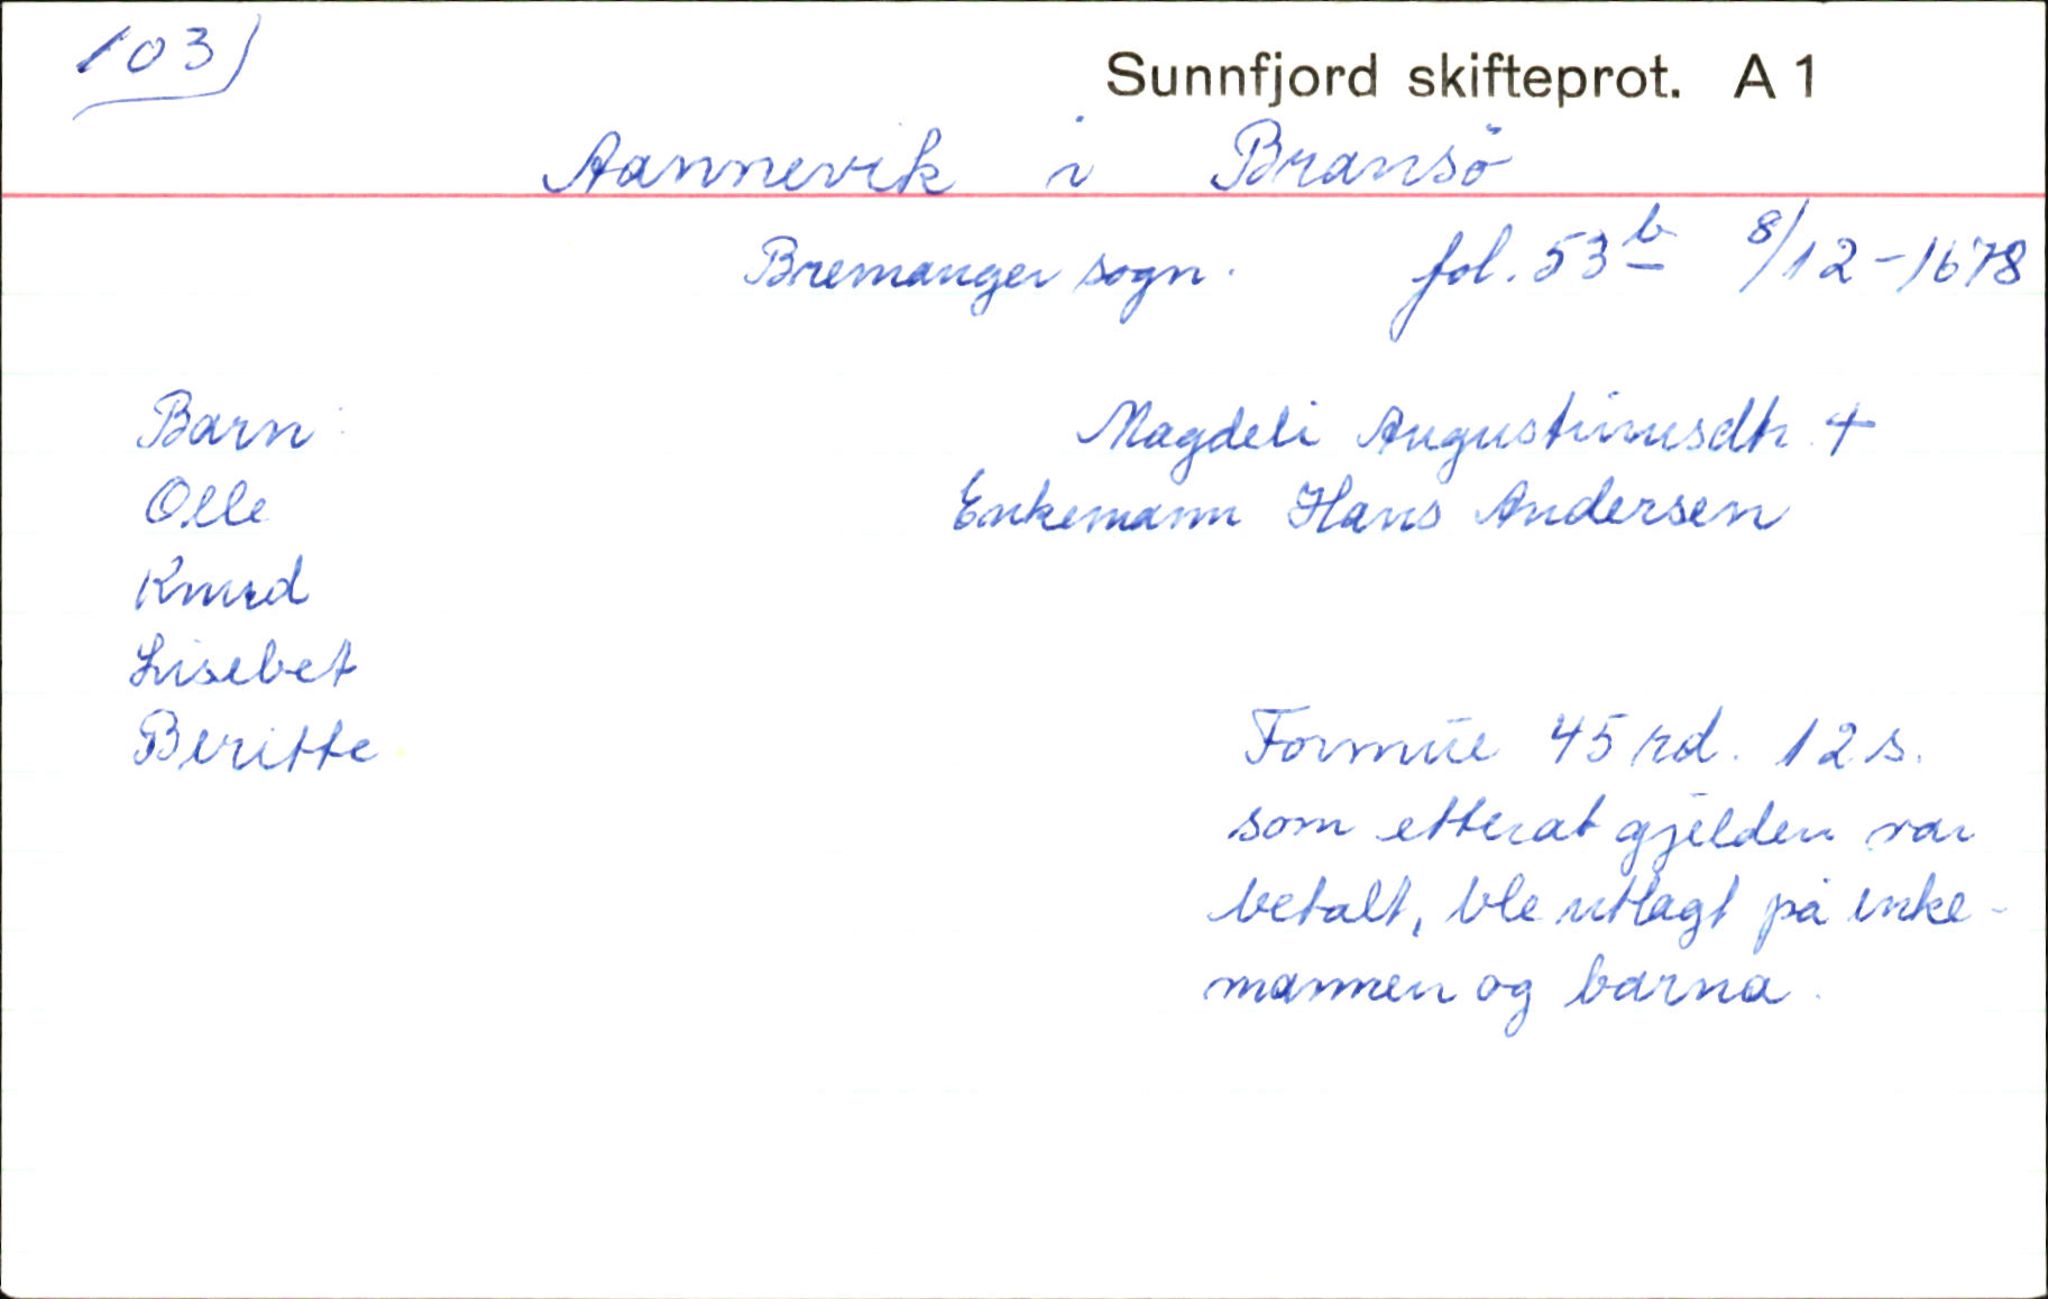 103)
Sunnfjord skifteprot. A 1
Aannevik i Bransö
Bremanger sogn. fol. 53b 8/12-1678
Barn: Magdeli Augustinusdtr. +
Olle Enkemann Hans Andersen
Knud
Lisebet
Beritte Formue 45 rd. 12 s.
som etterat gjelden var
betalt, ble utlagt på enke-
mannen og barna.